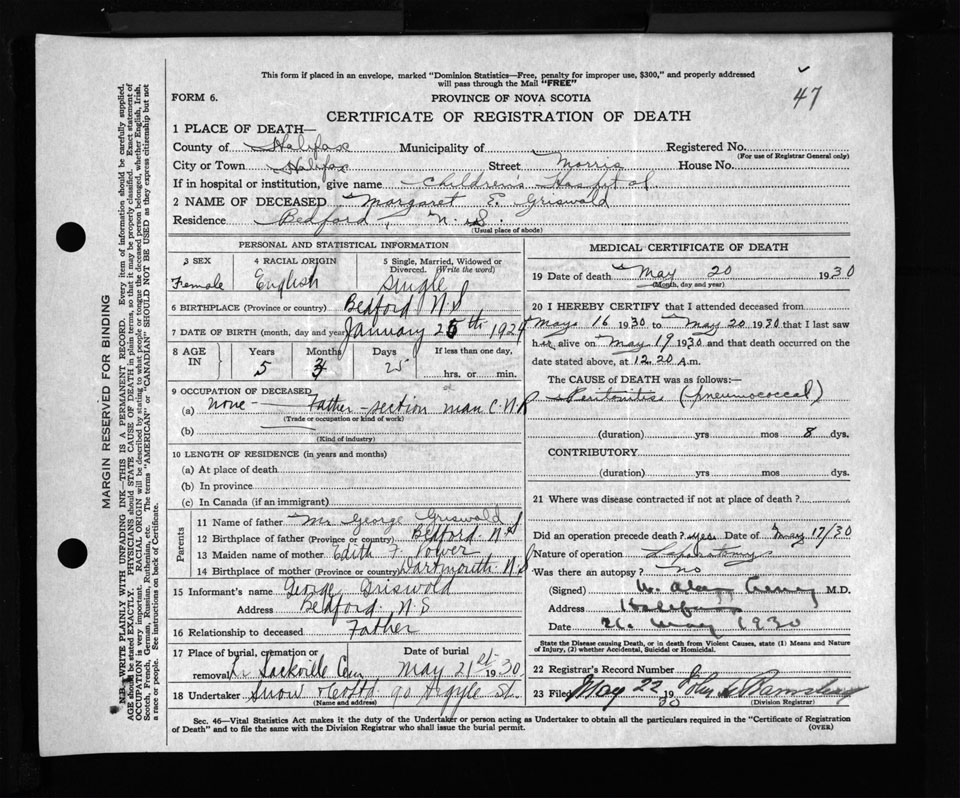 47
This form if placed in an envelope, marked "Dominion Statistics—Free, penalty for improper use, $300," and properly addressed
will pass through the Mail "FREE"
FORM 6.
PROVINCE OF NOVA SCOTIA
CERTIFICATE OF REGISTRATION OF DEATH
1 PLACE OF DEATH—
County of Halifax Municipality of Registered No.
(For use of Registrar General only)
City or Town Halifax Street Morris House No.
If in hospital or institution, give name Children's Hospital
2 NAME OF DECEASED Margaret E. Griswald
Residence Bedford, N.S.
(Usual place of abode)
PERSONAL AND STATISTICAL INFORMATION
3 SEX 4 RACIAL ORIGIN 5 Single, Married, Widowed or
Divorced. (Write the word)
Female English Single
6 BIRTHPLACE (Province or country) Bedford N S
7 DATE OF BIRTH (month, day and year) January 25th 1924
8 AGE IN Years Months Days If less than one day,
5 3 25 hrs. or min.
9 OCCUPATION OF DECEASED
(a) none — Father - section man C.N.R
(Trade or occupation or kind of work)
(b)
(Kind of industry)
10 LENGTH OF RESIDENCE (in years and months)
(a) At place of death
(b) In province
(c) In Canada (if an immigrant)
Parents
11 Name of father Mr George Griswald
12 Birthplace of father (Province or country) Bedford. N S
13 Maiden name of mother Edith F. Power
14 Birthplace of mother (Province or country) Dartmouth N S
15 Informant's name George Griswold
Address Bedford, N S
16 Relationship to deceased Father
17 Place of burial, cremation or Date of burial
removal Sackville Cem May 21st 1930
18 Undertaker Snow & Co Ltd 90 Argyle St.
(Name and address)
MEDICAL CERTIFICATE OF DEATH
19 Date of death May 20 1930
(Month, day and year)
20 I HEREBY CERTIFY that I attended deceased from
May 16 1930 to May 20 1930 that I last saw
her alive on May 19 1930 and that death occurred on the
date stated above, at 12.20 A.m.
The CAUSE of DEATH was as follows:—
Peritonitis (pneumococcal)
(duration) yrs mos 8 dys.
CONTRIBUTORY
(duration) yrs mos dys.
21 Where was disease contracted if not at place of death?
Did an operation precede death? yes Date of May 17/30
Nature of operation Laparotomy
Was there an autopsy? no
(Signed) M.D.
Address Halifax
Date 21. May 1930
State the Disease causing Death, or in death from Violent Causes, state (1) Means and Nature
of Injury, (2) whether Accidental, Suicidal or Homicidal.
22 Registrar's Record Number
23 Filed May 22 1930 John
(Division Registrar)
Sec. 46—Vital Statistics Act makes it the duty of the Undertaker or person acting as Undertaker to obtain all the particulars required in the "Certificate of Registration
of Death" and to file the same with the Division Registrar who shall issue the burial permit.
(OVER)
MARGIN RESERVED FOR BINDING
N.B.—WRITE PLAINLY WITH UNFADING INK—THIS IS A PERMANENT RECORD. Every item of information should be carefully supplied.
AGE should be stated EXACTLY. PHYSICIANS should STATE CAUSE OF DEATH in plain terms, so that it may be properly classified. Exact statement of
OCCUPATION is very important. RACIAL ORIGIN will be described by stating to what people or tongue the deceased person belonged, whether English, Irish,
Scotch, French, German, Russian, Ruthenian, etc. The terms "AMERICAN" or "CANADIAN" SHOULD NOT BE USED as they express citizenship but not
a race or people. See instructions on back of Certificate.